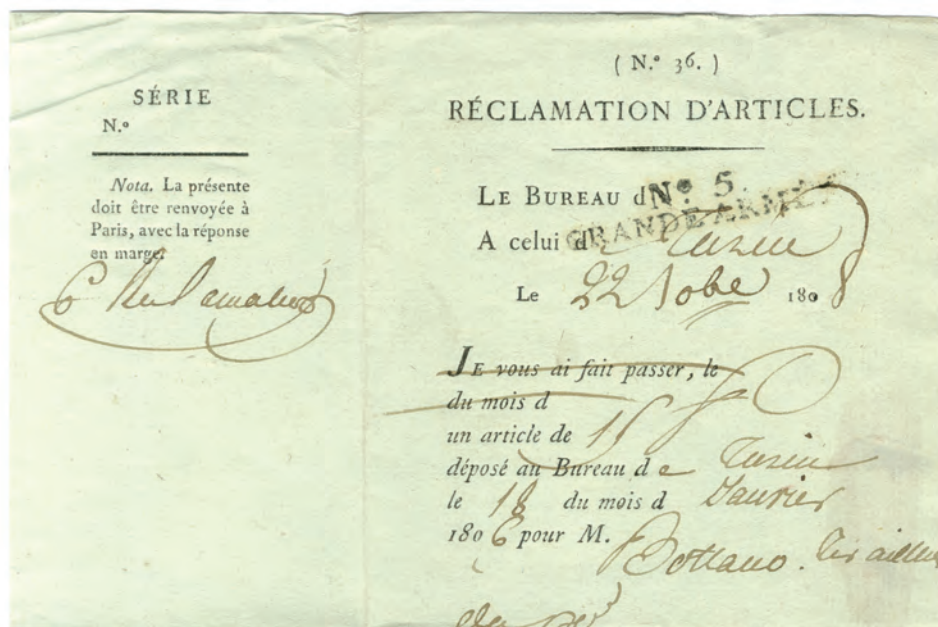 SÉRIE
N.º
Nota. La présente
doit être renvoyée à
Paris, avec la réponse
en marge.
6
( N.º 36. )
RÉCLAMATION D'ARTICLES.
LE BUREAU d Nº. 5.
GRANDE ARMÉE
A celui de Turin
Le 22 1808
JE vous ai fait passer, le
du mois d
un article de 15
déposé au Bureau de Turin
le 18 du mois d Janvier
1806 pour M.
Bottano. tirailleur